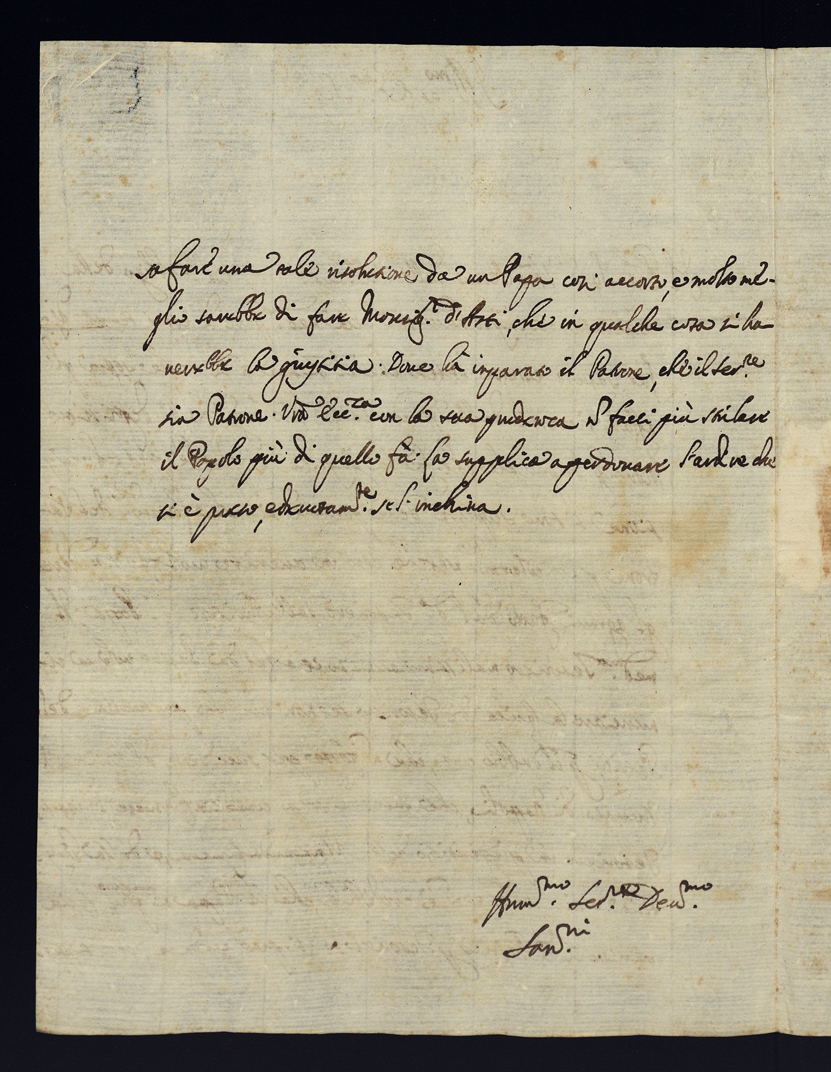 sa fare una tale risolutione da un Papa così accorto, e molto me-
glio sarebbe di fare Monsig.r d'Asti, che in qualche cosa si ha-
verebbe la giustitia. Dove hà imparato il Patrone, che il Ser.re
sia Patrone. Vra Ecc.za con la sua prudenza facci più stilare
il Popolo più di quello fà. La supplico a perdonare l'ardire che
si è preso, e devotam.te se l'inchina.
Hum.mo Ser.re Dev.mo